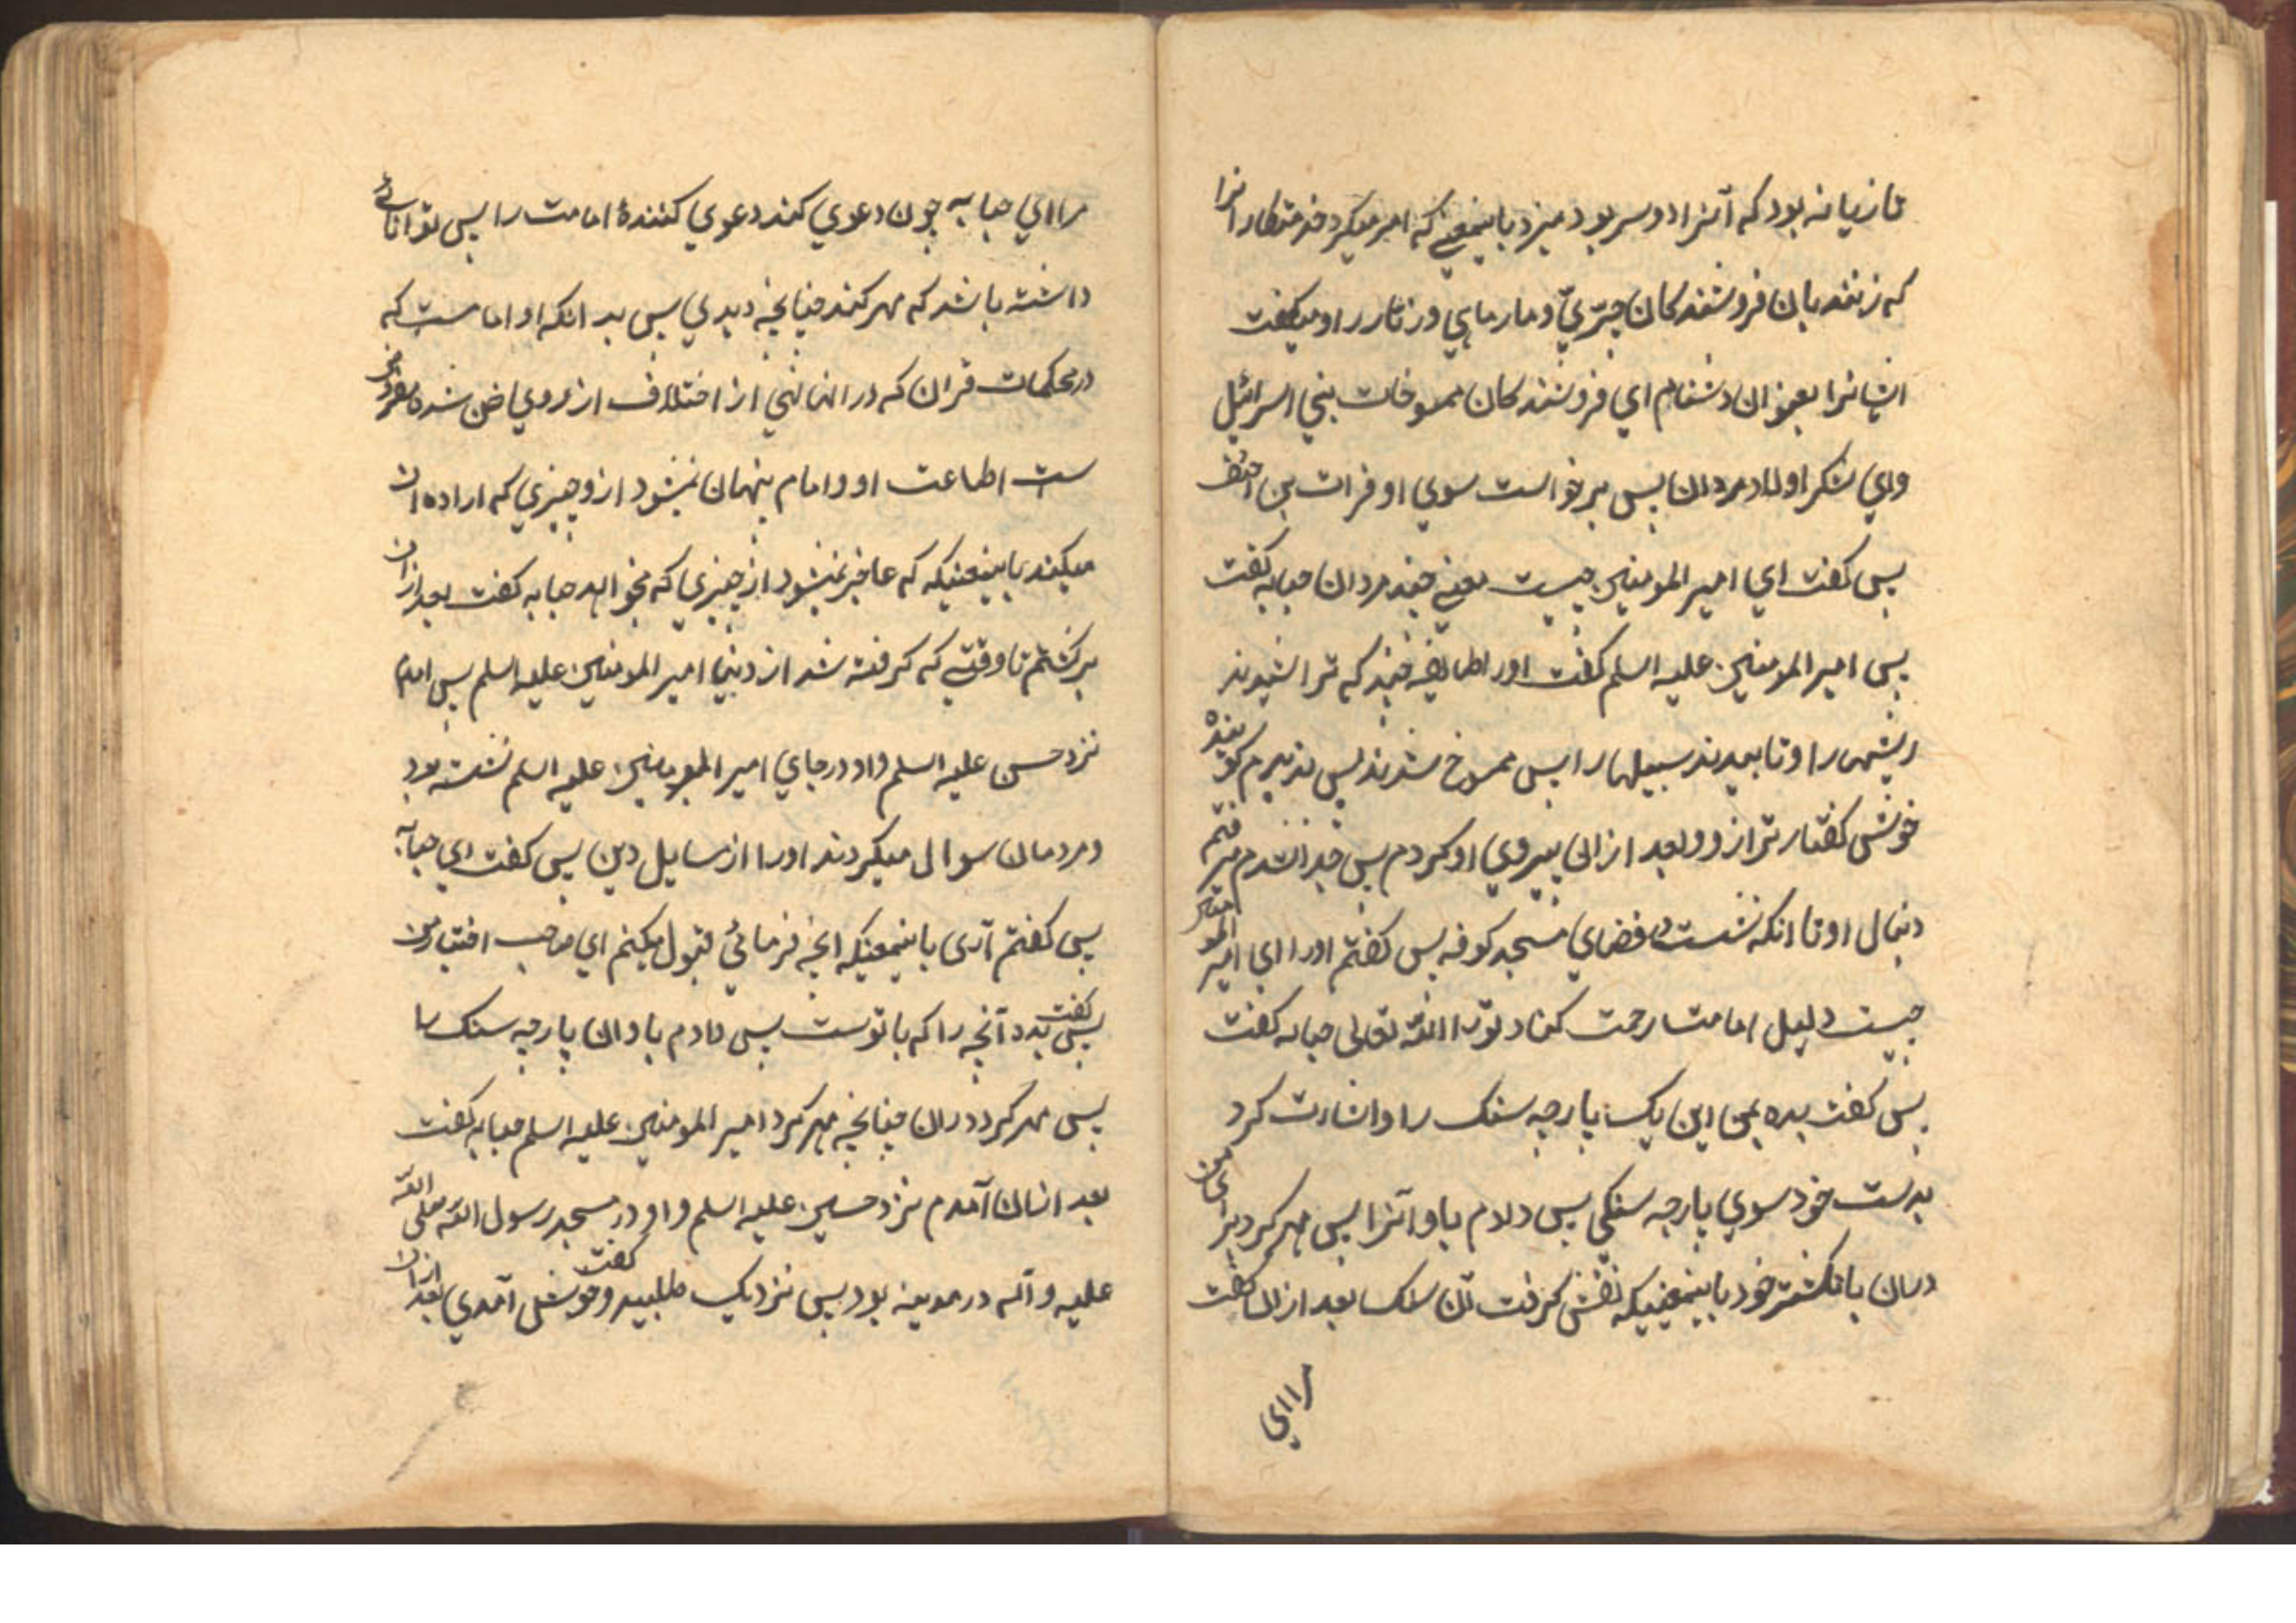 تازیانه بود که آنرا دو سر بود میزد باینمعنی که امر میکرد خدمتکار انرا
که زنند بان فروشندکان جرّیّ و مارماهي و زمّار را و میکفت
ایشانرا بعنوان دشنام اي فروشندکان ممسوخات بني اسرائیل
واي لشکر اولاد مردان پس برخواست سوي او فرات بن احنف
پس کفت اي امیر المومنین چیست معني جند مردان حبابه کفت
پس امیر المومنین علیه السلم کفت اورا طایفه چند که تراشیدند
ریشها را و تابیدند سبیلها را پس ممسوخ شدند پس ندیدم کوینده
خوش کفتار تر از و و بعد ازان پیروي او کردم پس جدا نشدم میرفتم
دنبال او تا انکه نشست در فضاي مسجد کوفه پس کفتم اورا اي امیر المومنین
چیست دلیل امامت رحمت کناد تو را الله تعالی حبابه کفت
پس کفت بده بمن این یک پارچه سنک را و اشارت کرد
بدست خود سوي پارچه سنکي پس دادم باو آنرا پس مهر کرد براي من
دران بانکشتر خود باینمعنیکه نقش کرفت آن سنک بعد ازان کفت
را اي
مرا اي حبابه چون دعوي کند دعوي کنندهٔ امامت را پس توانائے
داشته باشد که مهر کند چنانچه دیدي پس بدانکه او امامست که
در محکمات قران که در انها نهي از اختلاف از روي ظن شده مفترض
ست اطاعت او و امام پنهان نمیشود ازو چیزي که اراده ان
میکند باینمعنیکه که عاجز نمیشود از چیزي که میخواهد حبابه کفت بعد ازان
برکشتم تا وقتي که کرفته شد از دنیا امیر المومنین علیه السلم پس امدم
نزد حسن علیه السلم و او در جاي امیر المومنین علیه السلم نشسته بود
و مردمان سوال میکردند اورا از مسایل دین پس کفت اي حبابه
پس کفتم آری باینمعنیکه انچه فرمائي قبول میکنم اي صاحب اختیار من
پس کفت بده آنچه را که با توست پس دادم باو ان پارچه سنک را
پس مهر کرد دران چنانچه مهر کرد امیر المومنین علیه السلم حبابه کفت
بعد ازان آمدم نزد حسین علیه السلم و او در مسجد رسول الله صلی الله
علیه و آله در مدینه بود پس نزدیک طلبید و کفت خوش آمدي بعد ازان